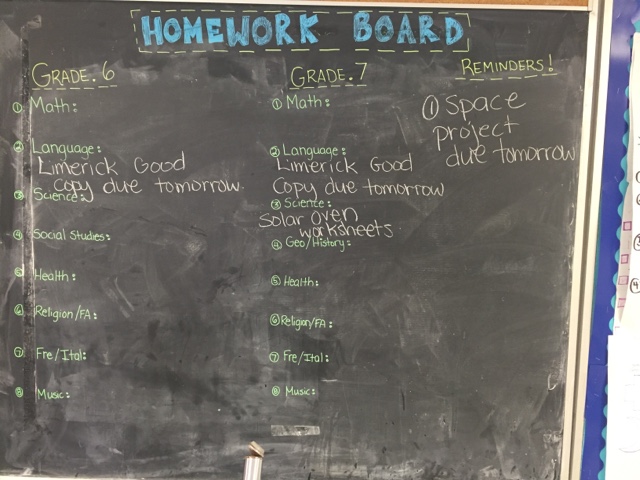 HOMEWORK BOARD
GRADE. 6
① Math:
② Language:
Limerick Good
Copy due tomorrow.
③ Science:
④ Social Studies:
⑤ Health:
⑥ Religion/FA:
⑦ Fre/Ital:
⑧ Music:
GRADE. 7
① Math:
② Language:
Limerick Good
Copy due tomorrow
③ Science:
Solar oven
worksheets
④ Geo/History:
⑤ Health:
⑥ Religion/FA:
⑦ Fre/Ital:
⑧ Music:
REMINDERS!
① Space
project
due tomorrow